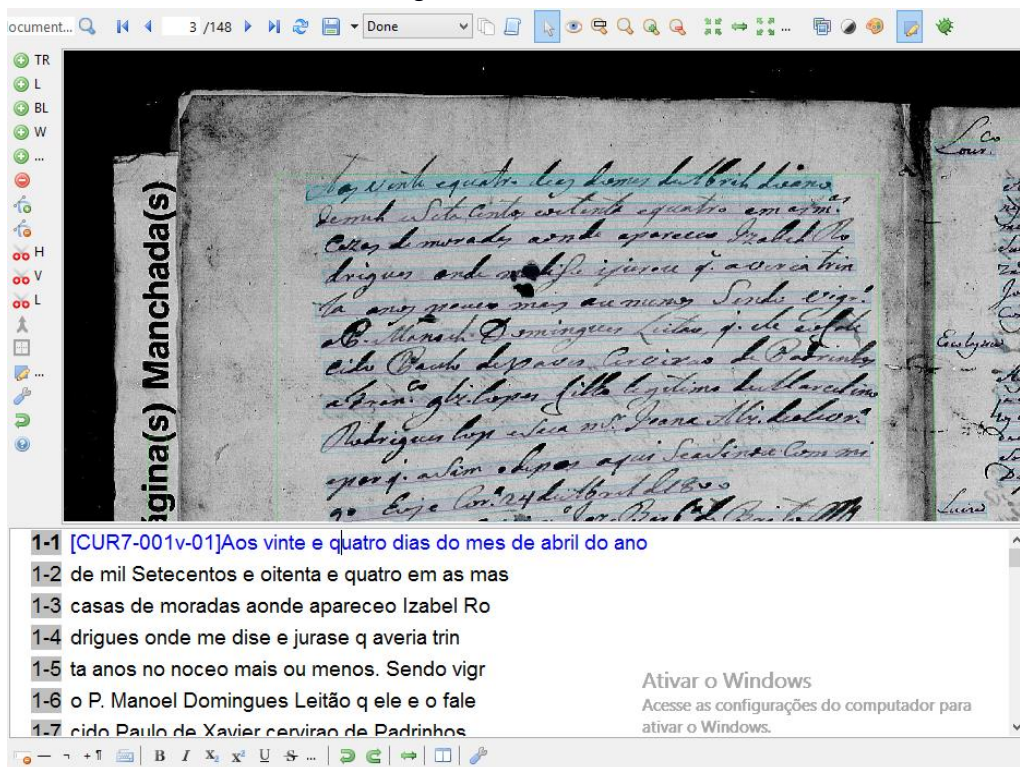 ocument...
3 /148
Done
TR
L
BL
W
...
H
V
L
...
ágina(s) Manchada(s)
Lour.co
Aos vinte equatro dias do mes de Abril do ano
de mil e Sete Centos e oitenta e quatro em as m.as
Cazas de moradas aonde apareceo Izabel Ro
drigues onde me dise e jurou q. averia trin
ta anos pouco mais ou menos Sendo vigr.o
o P. Manoel Domingues Leitão, q. ele e o fale
cido Paulo de Xavier Cerviraõ de Padrinhos
a Fran.co Glz. Lopes filho legitimo de Marcelino
Rodrigues Lopes e Sua m.er Joana Alz. de
e por q. asim o depos aqui Se asinou Com mi
go Eoje Cor.a 24 de Abril de 1800
1-1 [CUR7-001v-01]Aos vinte e quatro dias do mes de abril do ano
1-2 de mil Setecentos e oitenta e quatro em as mas
1-3 casas de moradas aonde apareceo Izabel Ro
1-4 drigues onde me dise e jurase q averia trin
1-5 ta anos no noceo mais ou menos. Sendo vigr
1-6 o P. Manoel Domingues Leitão q ele e o fale
1-7 cido Paulo de Xavier cervirao de Padrinhos
Ativar o Windows
Acesse as configurações do computador para
ativar o Windows.
B I X₂ X² U S ...